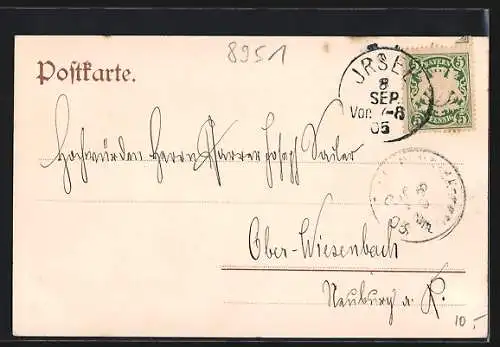 8951
Postkarte.
JRSEE
8
SEP.
Vor. 7-8
05
BAYERN
5 5
5 5
PFENNIG
Hochwürden Herrn Pfarrer Joseph Sailer
Ober-Wiesenbach
Neuburg a. K.
10,-